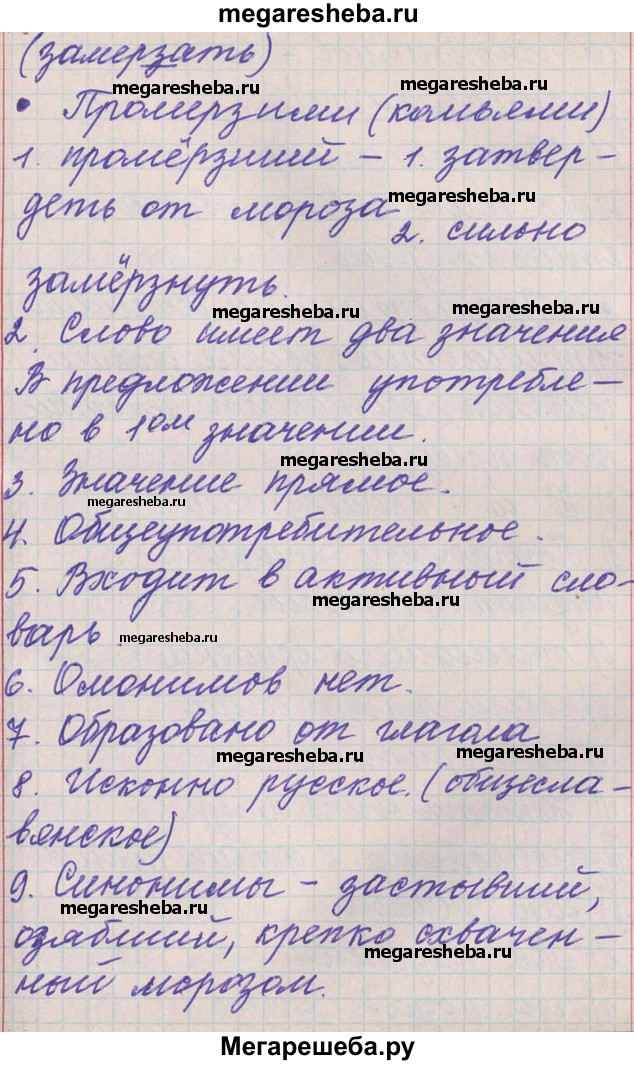 megaresheba.ru
(замерзать)
megaresheba.ru
megaresheba.ru
• Промерзими (комьями)
1. промёрзший – 1. затвер-
megaresheba.ru
деть от мороза
2. сильно
замёрзнуть.
megaresheba.ru
megaresheba.ru
2. Слово имеет два значения
В предложении употребле-
но в 1ом значении.
megaresheba.ru
3. Значение прямое.
megaresheba.ru
4. Общеупотребительное.
5. Входит в активный сло-
megaresheba.ru
варь.
megaresheba.ru
6. Омонимов нет.
7. Образовано от глагола
megaresheba.ru
megaresheba.ru
8. Исконно русское. (общесла-
вянское)
9. Синонимы – застывший,
megaresheba.ru
озябший, крепко схвачен-
megaresheba.ru
ный морозом.
Мегарешеба.ру